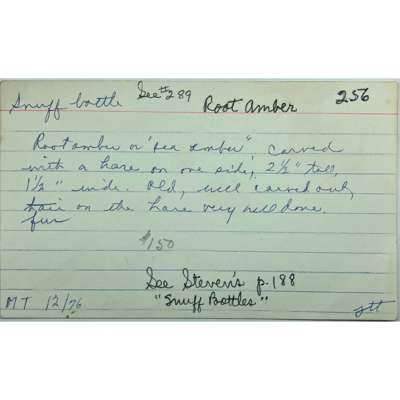 Snuff bottle See #289 Root Amber 256
Root amber or "sea amber" carved
with a hare on one side, 2½" tall,
1½" wide. Old, well carved out,
hair on the hare very well done.
fur
$150
See Steven's p. 188
"Snuff Bottles"
MT 12/76